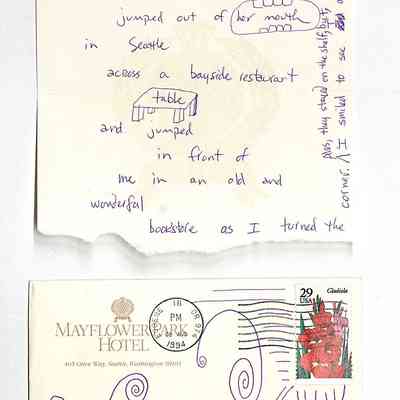 jumped out of her mouth
in Seattle
across a bayside restaurant
table
and jumped
in front of
me in an old and
wonderful
bookstore as I turned the
corner. I smiled to see
they stayed on the shelf, but,
MAYFLOWER PARK
HOTEL
405 Olive Way, Seattle, Washington 98101
EUGENE OR 974
PM
1994
29
USA
Gladiola